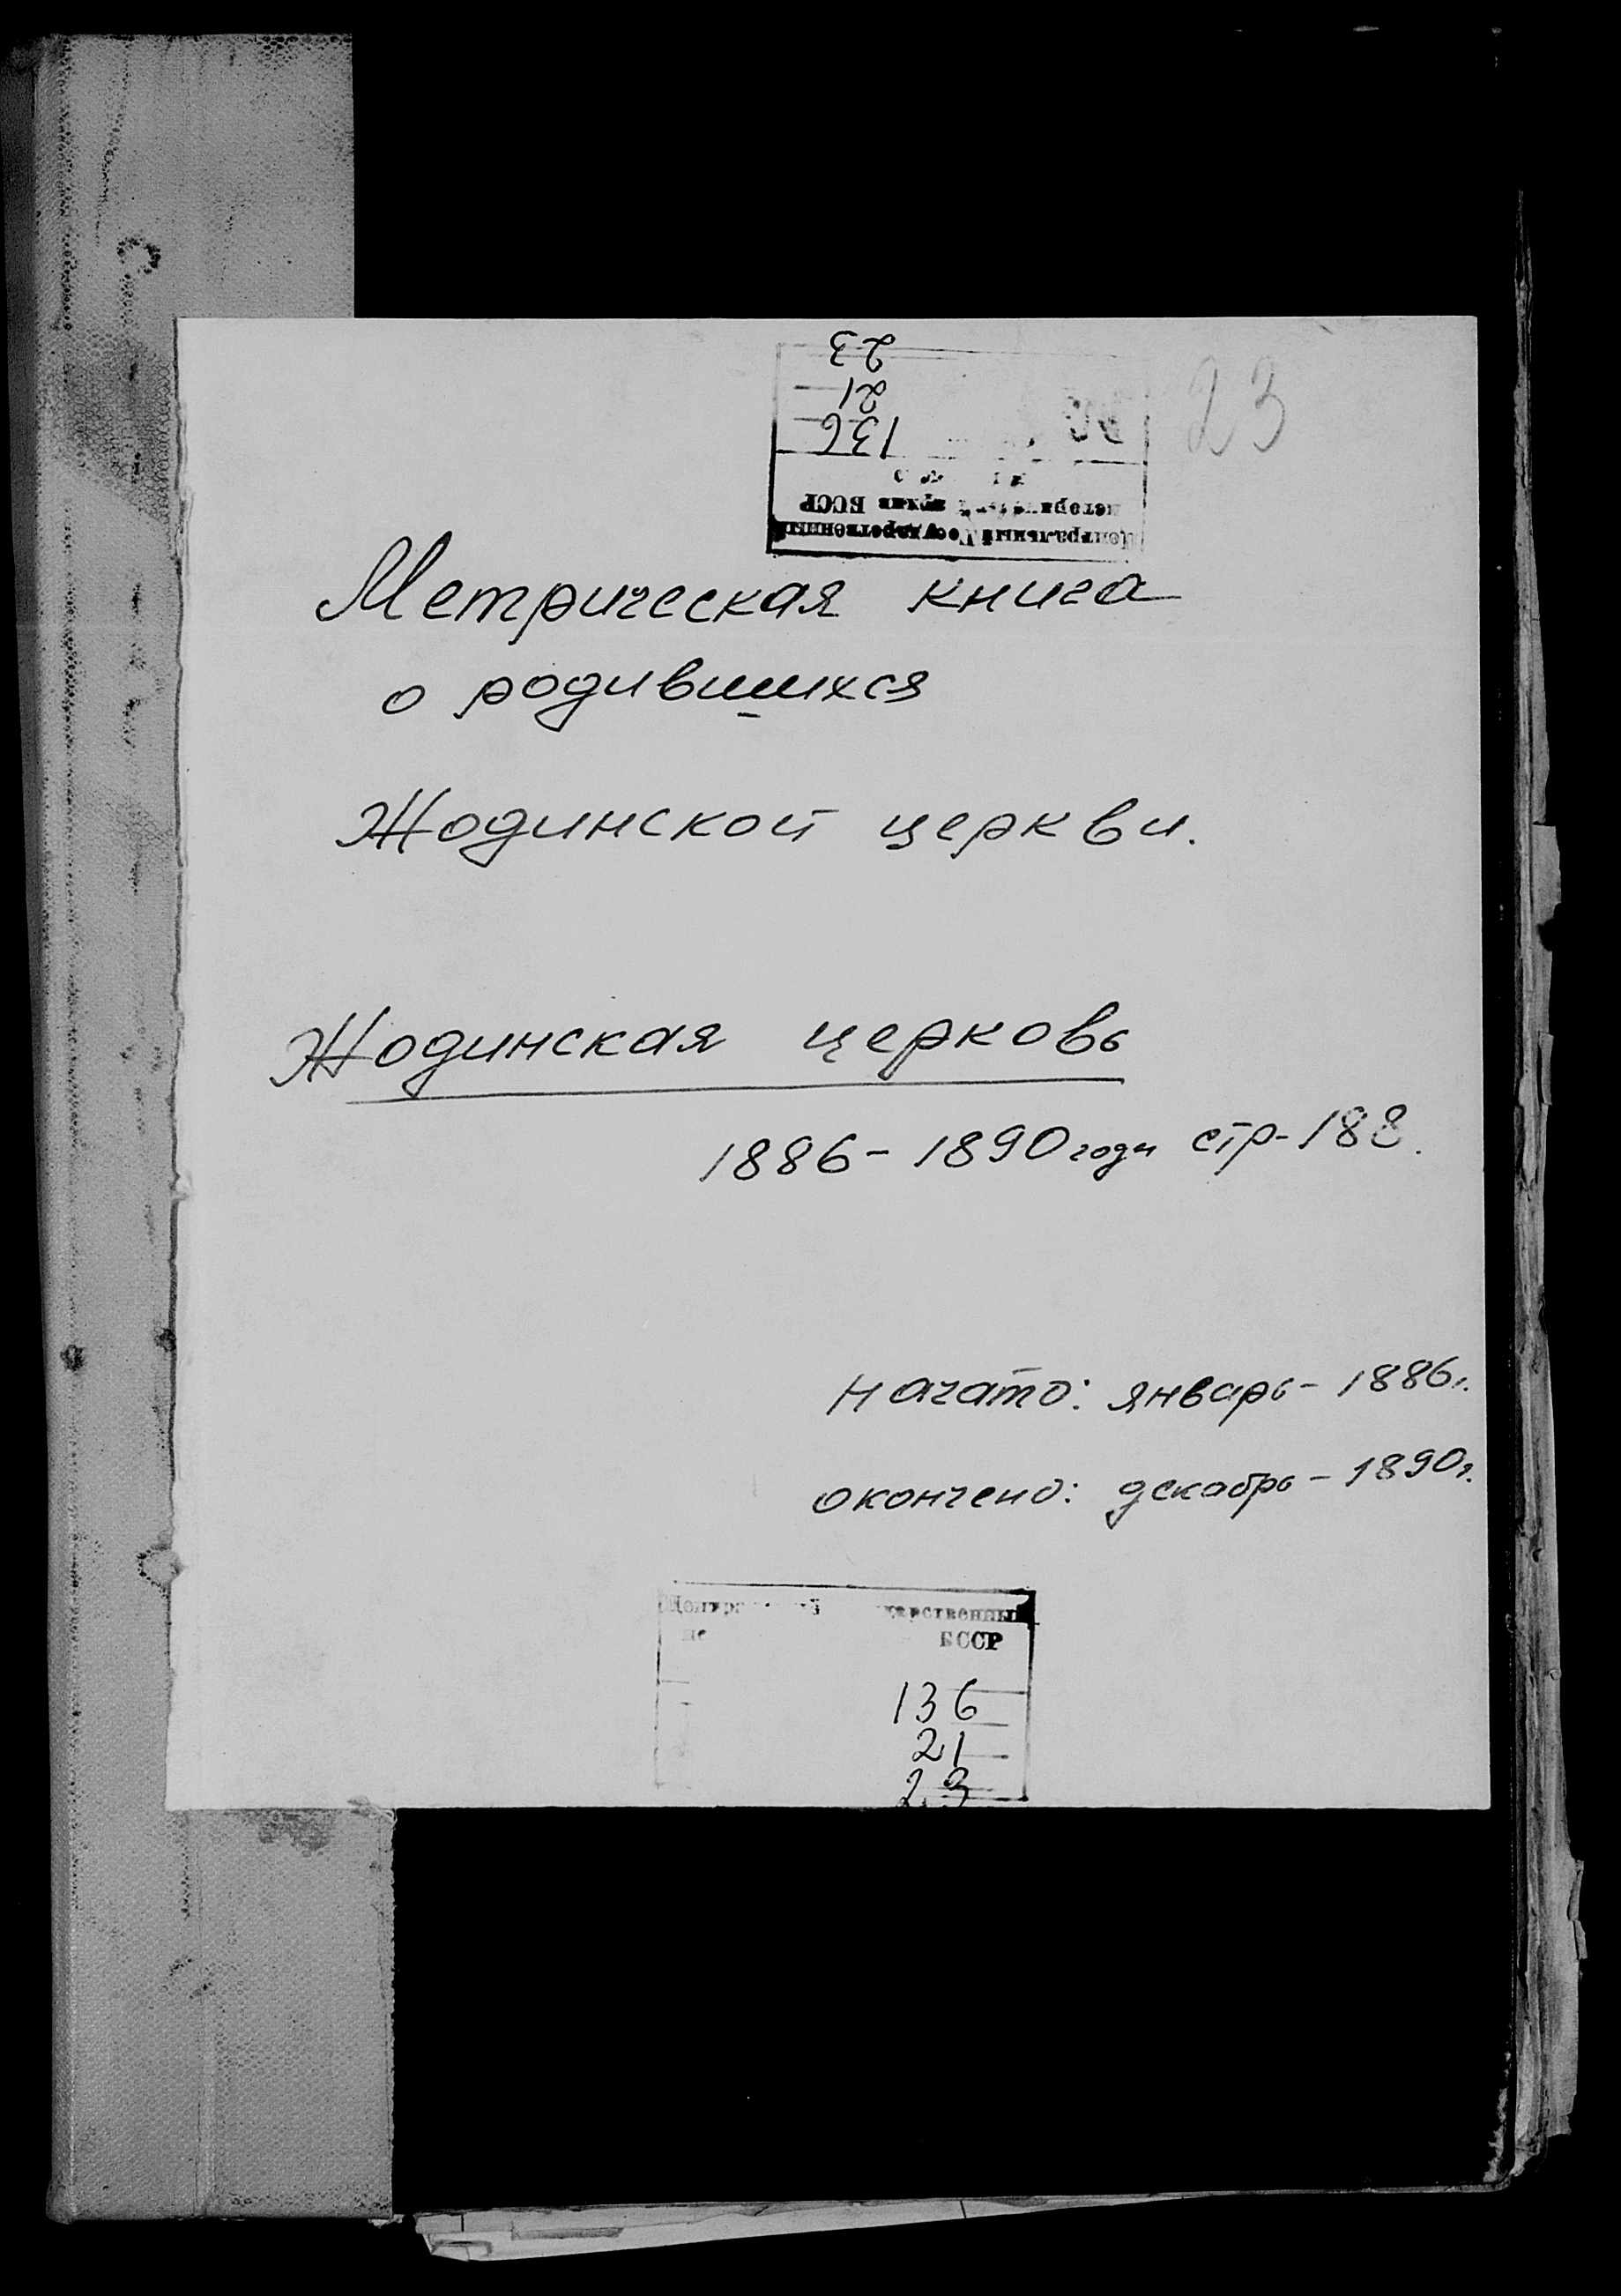 23
21
136
исторический архив БССР
Центральный Государственный
23
Метрическая книга
о родившихся
Жодинской церкви.
Жодинская церковь
1886 - 1890 годы стр - 188.
Начато: январь - 1886 г.
окончено: декабрь - 1890 г.
БССР
136
21
23